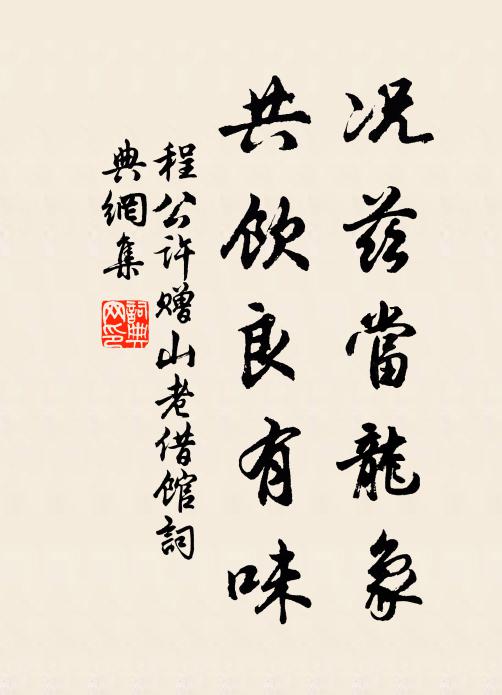 况兹當龍象
共飲良有味
程公许赠山老借馆詞
典網集
詞典
网印